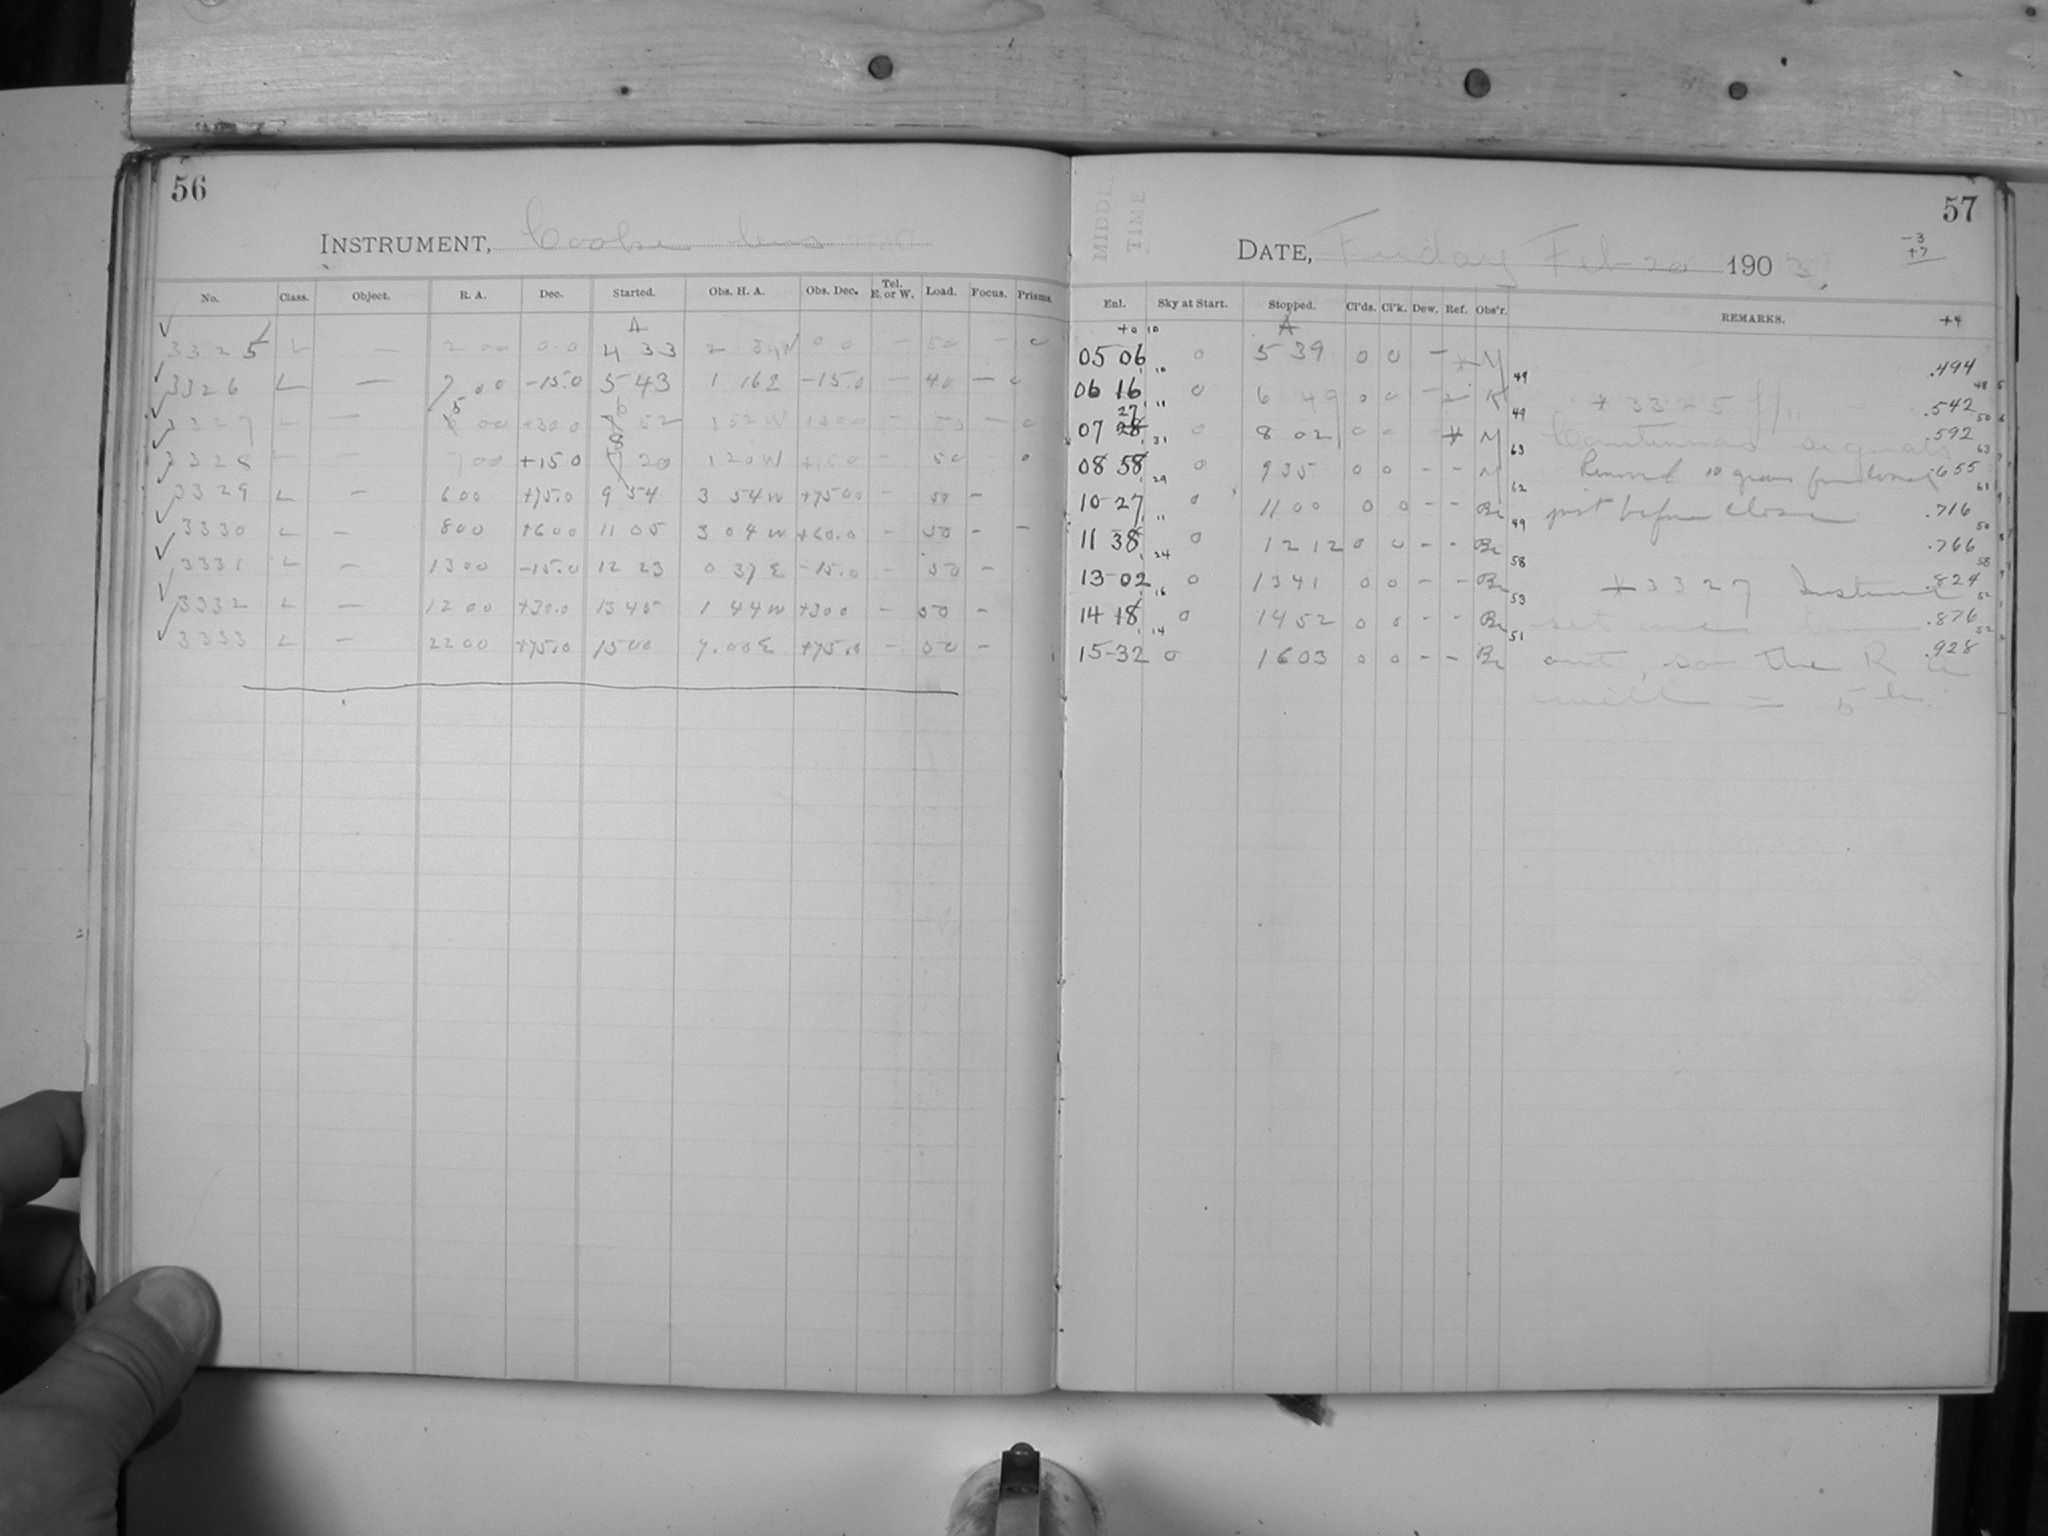 56
INSTRUMENT, Cooke lens
No. Class. Object. R. A. Dec. Started. Obs. H. A. Obs. Dec. Tel. E. or W. Load. Focus. Prisms
A
✓ 3325 L — 2 00 0.0 4 33 2 W 0 0 — 50 — 0
✓ 3326 L — 7 00 -15.0 5 43 1 16 E -15.0 — 40 — 0
✓ 3327 L — 5 00 +30.0 6 52 1 52 W +30.0 — 50 — 0
✓ 3328 L — 7 00 +15.0 8 20 1 20 W +15.0 — 50 0
✓ 3329 L — 6 00 +75.0 9 54 3 54 W +75.0 — 50 —
✓ 3330 L — 8 00 +60.0 11 05 3 04 W +60.0 — 50 — —
✓ 3331 L — 13 00 -15.0 12 23 0 37 E -15.0 — 50 —
✓ 3332 L — 12 00 +30.0 13 45 1 44 W +30.0 — 50 —
✓ 3333 L — 22 00 +75.0 15 00 7.00 E +75.0 — 50 —
57
MIDDL
TIME
DATE, Friday Feb 20 1903
-3
+7
Enl. Sky at Start. Stopped. Cl'ds. Cl'k. Dew. Ref. Obs'r. REMARKS. +4
+0 10 A
05 06 0 5 39 0 0 — * M .494
06 16 0 6 49 0 0 — 2 K 49 * 3325 .542
07 27 0 8 02 0 0 * M 49 Continuous signals .592
08 58 0 9 35 0 0 — — M 63 Removed 10 grams from .655
10 27 0 11 00 0 0 — — Br 62 just before close .716
11 38 0 12 12 0 0 — — Br 49 .766
13-02 0 13 41 0 0 — — Br 58 * 3327 .824
14 18 0 14 52 0 0 — — Br 53 set one .876
15-32 0 16 03 0 0 — — Br 51 out, so the R A .928
will = 5